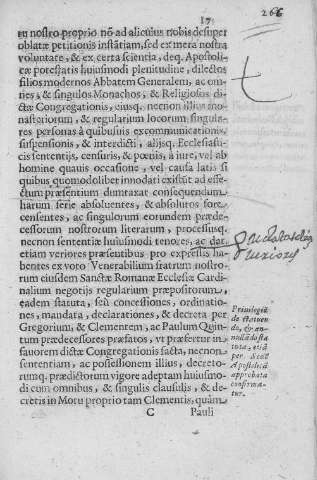 17
266
tu nostro proprio nõ ad alicuius nobis desuper
oblatæ petitionis instãtiam, sed ex mera nostra
voluntate, & ex certa scientia, deq. Apostoli-
cæ potestatis huiusmodi plenitudine, dilectos
filios modernos Abbatem Generalem, ac om-
nes, & singulos Monachos, & Religiosos di-
ctæ Congregationis, eiusq. necnon illius mo-
nasteriorum, & regularium locorum singula-
res personas à quibusuis excommunicationis,
suspensionis, & interdicti, alijsq. Ecclesiasti-
cis sententijs, censuris, & pœnis, à iure, vel ab
homine quauis occasione, vel causa latis si
quibus quomodolibet innodati existũt ad effe-
ctum præsentium dumtaxat consequendum
harum serie absoluentes, & absolutos fore
censentes, ac singulorum eorundem præde-
cessorum nostrorum literarum, processusq.
necnon sententiæ huiusmodi tenores, ac dat.
etiam veriores præsentibus pro expressis ha-
bentes ex voto Venerabilium fratrum nostro-
rum eiusdem Sanctæ Romanæ Ecclesiæ Cardi-
nalium negotijs regularium præpositorum,
eadem statuta, seu concessiones, ordinatio-
nes, mandata, declarationes, & decreta per
Gregorium, & Clementem, ac Paulum Quin-
tum prædecessores præfatos, vt præfertur in
fauorem dictæ Congregationis facta, necnon
sententiam, ac possessionem illius, decreto-
rumq. prædictorum vigore adeptam huiusmo-
di cum omnibus, & singulis clausulis, & de-
cretis in Motu proprio tam Clementis, quàm
C Pauli
Priuilegia
de statuen-
do, & an-
nullãdo sta
tuta, etiã
per Sedẽ
Apostolicã
approbata
confirma-
tur.